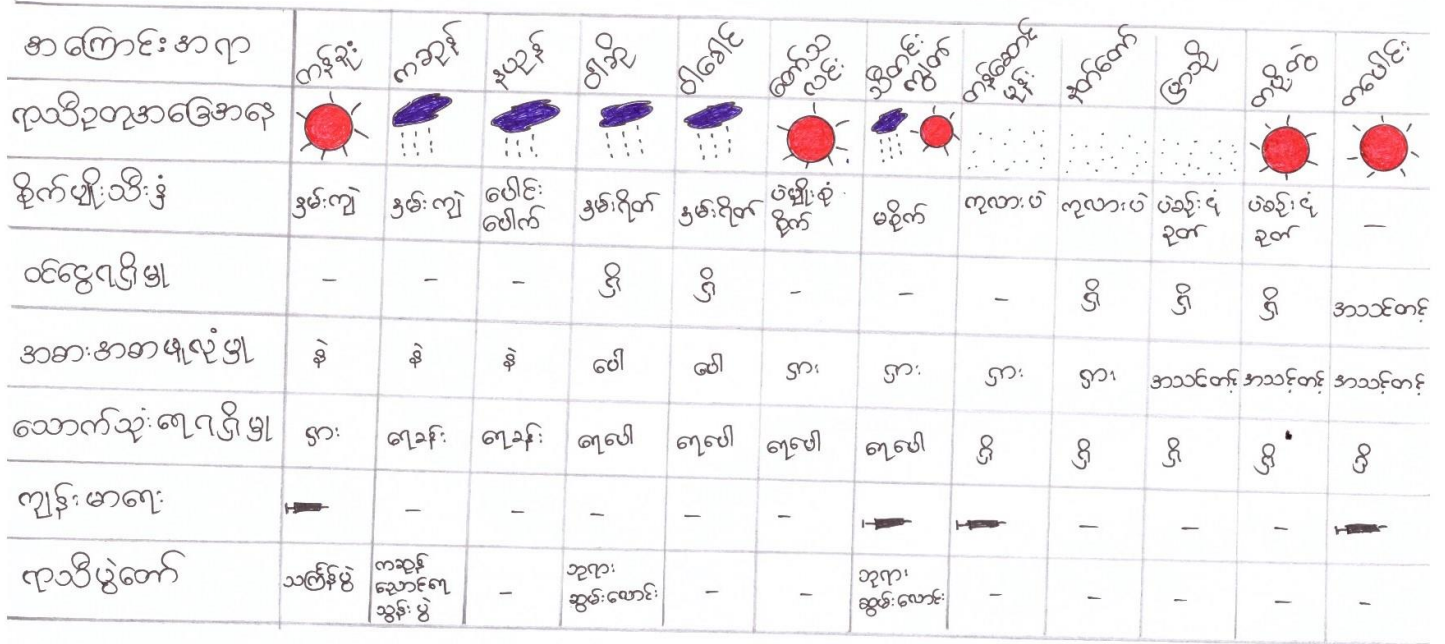 အကြောင်းအရာ တန်ခူး ကဆုန် နယုန် ဝါဆို ဝါခေါင် တော်သလင်း သီတင်းကျွတ် တန်ဆောင်မုန်း နတ်တော် ပြာသို တပို့တွဲ တပေါင်း
ရာသီဥတုအခြေအနေ
စိုက်ပျိုးသီးနှံ နှမ်းကျဲ နှမ်းကျဲ ပေါင်းပေါက် နှမ်းရိတ် နှမ်းရိတ် ပဲမျိုးစုံစိုက် မစိုက် ကုလားပဲ ကုလားပဲ ပဲခင်းငုံ ပဲခင်းငုံ –
ဝင်ငွေရရှိမှု – – – ရှိ ရှိ – – – ရှိ ရှိ ရှိ အသင့်တင့်
အစားအစာဖူလုံမှု နဲ နဲ နဲ ပေါ ပေါ ရှား ရှား ရှား ရှား အသင်တင့် အသင့်တင့် အသင့်တင့်
သောက်သုံးရေရရှိမှု ရှား ရေခန်း ရေခန်း ရေပေါ ရေပေါ ရေပေါ ရေပေါ ရှိ ရှိ ရှိ ရှိ ရှိ
ကျန်းမာရေး – – – – – – – –
ရာသီပွဲတော် သင်္ကြန်ပွဲ ကဆုန်ညောင်ရေသွန်းပွဲ – ဘုရားဆွမ်းလောင်း – – ဘုရားဆွမ်းလောင်း – – – – –